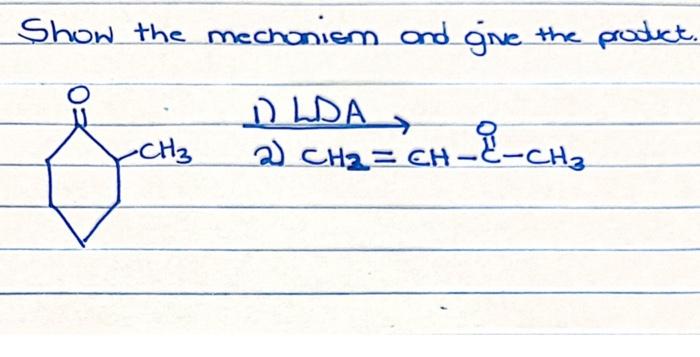 Show the mechanism and give the product.
O
1) LDA
O
CH3
2) CH2 = CH - C - CH3